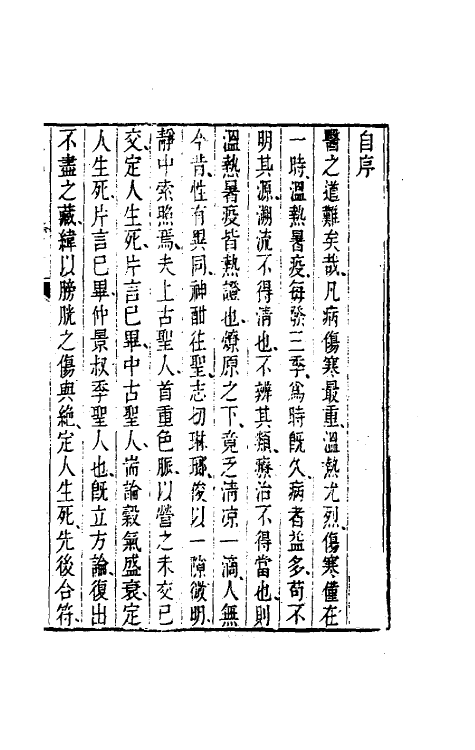 自序
醫之道難矣哉、凡病傷寒最重、溫熱尤烈、傷寒僅在
一時、溫熱暑疫、每發三季、爲時旣久、病者益多、苟不
明其源、溯流不得清也、不辨其類、療治不得當也、則
溫熱暑疫皆熱證也、燎原之下、竟乏清凉一滴、人無
今昔、性有異同、神酣往聖、志切琳瑯、俊以一隙微明、
靜中索照焉、夫上古聖人、首重色脈、以營之未交已
交、定人生死、片言已畢、中古聖人、耑論穀氣盛衰、定
人生死、片言已畢、仲景叔季聖人也、旣立方論、復出
不盡之藏、緯以膀胱之傷與絶、定人生死、先後合符、